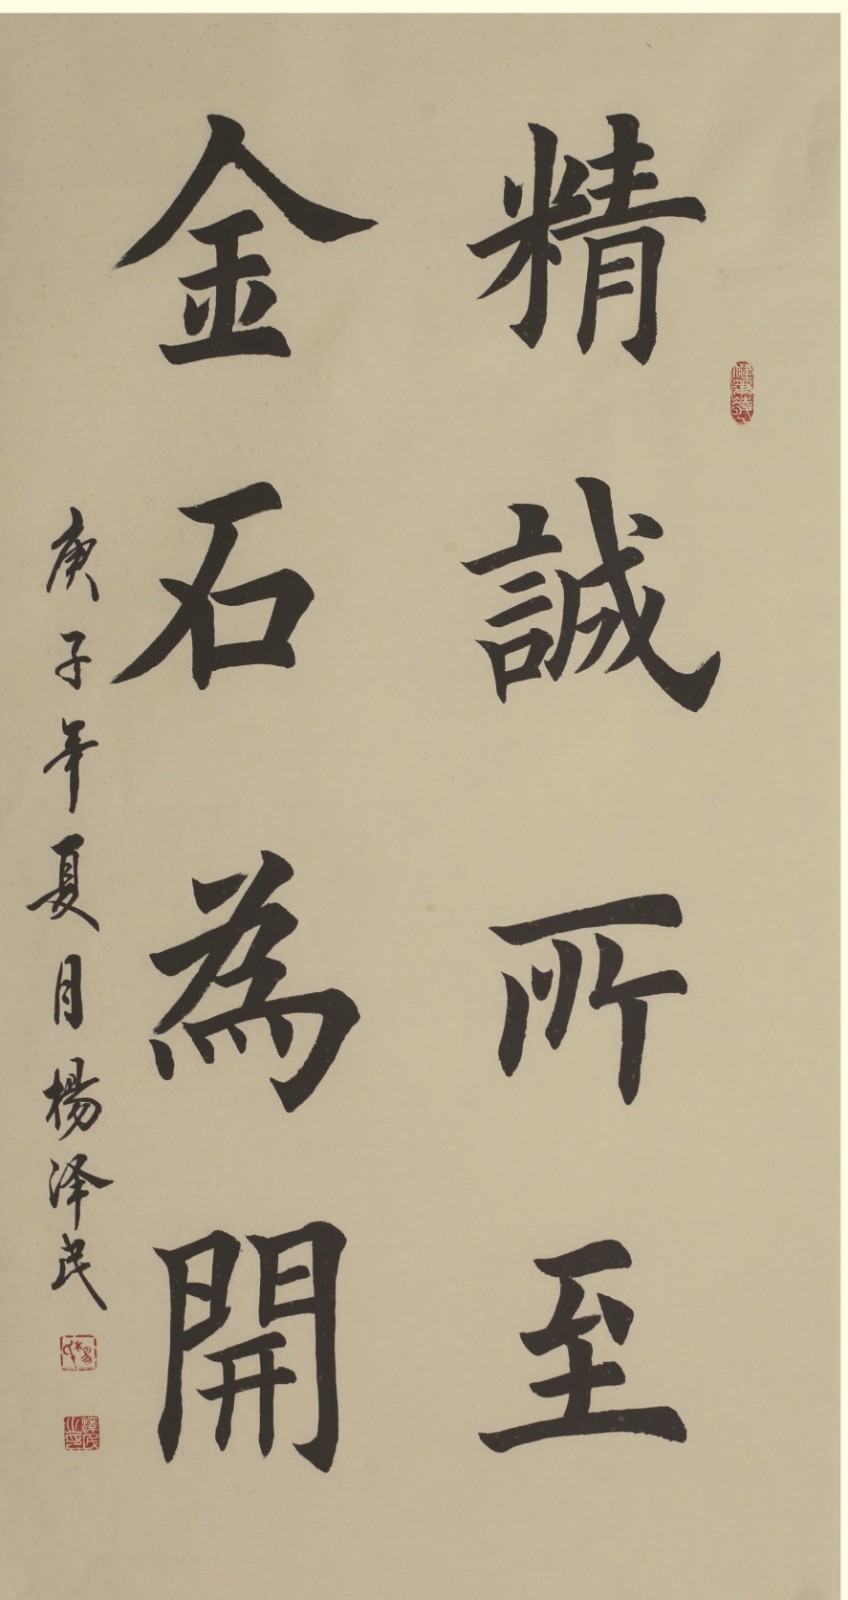 精誠所至
金石為開
庚子年夏月楊泽民